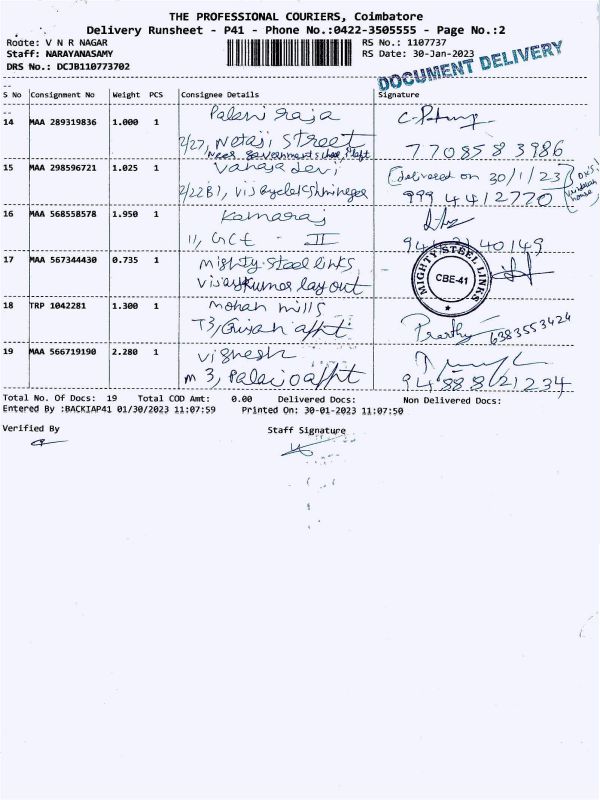 THE PROFESSIONAL COURIERS, Coimbatore
Delivery Runsheet - P41 - Phone No.:0422-3505555 - Page No.:2
Route: V N R NAGAR
RS No.: 1107737
Staff: NARAYANASAMY
RS Date: 30-Jan-2023
DRS No.: DCJB110773702
DOCUMENT DELIVERY
S No Consignment No Weight PCS Consignee Details Signature
14 MAA 289319836 1.000 1 Palani raja
2/27, Netaji Street
Near government school,
7708583986
15 MAA 298596721 1.025 1 Vanaja devi
(delivered on 30/1/23)
2/22B1,
999 4412770
16 MAA 568558578 1.950 1 Kamaraj
11, GCT - II
17 MAA 567344430 0.735 1 Mighty Steel links
Vijaykumar layout
MIGHTY STEEL LINKS
CBE-41
18 TRP 1042281 1.300 1 Mohan mills
T3,
6383553424
19 MAA 566719190 2.280 1 Vignesh
m 3,
94888 21234
Total No. Of Docs: 19 Total COD Amt: 0.00 Delivered Docs: Non Delivered Docs:
Entered By :BACKIAP41 01/30/2023 11:07:59 Printed On: 30-01-2023 11:07:50
Verified By Staff Signature